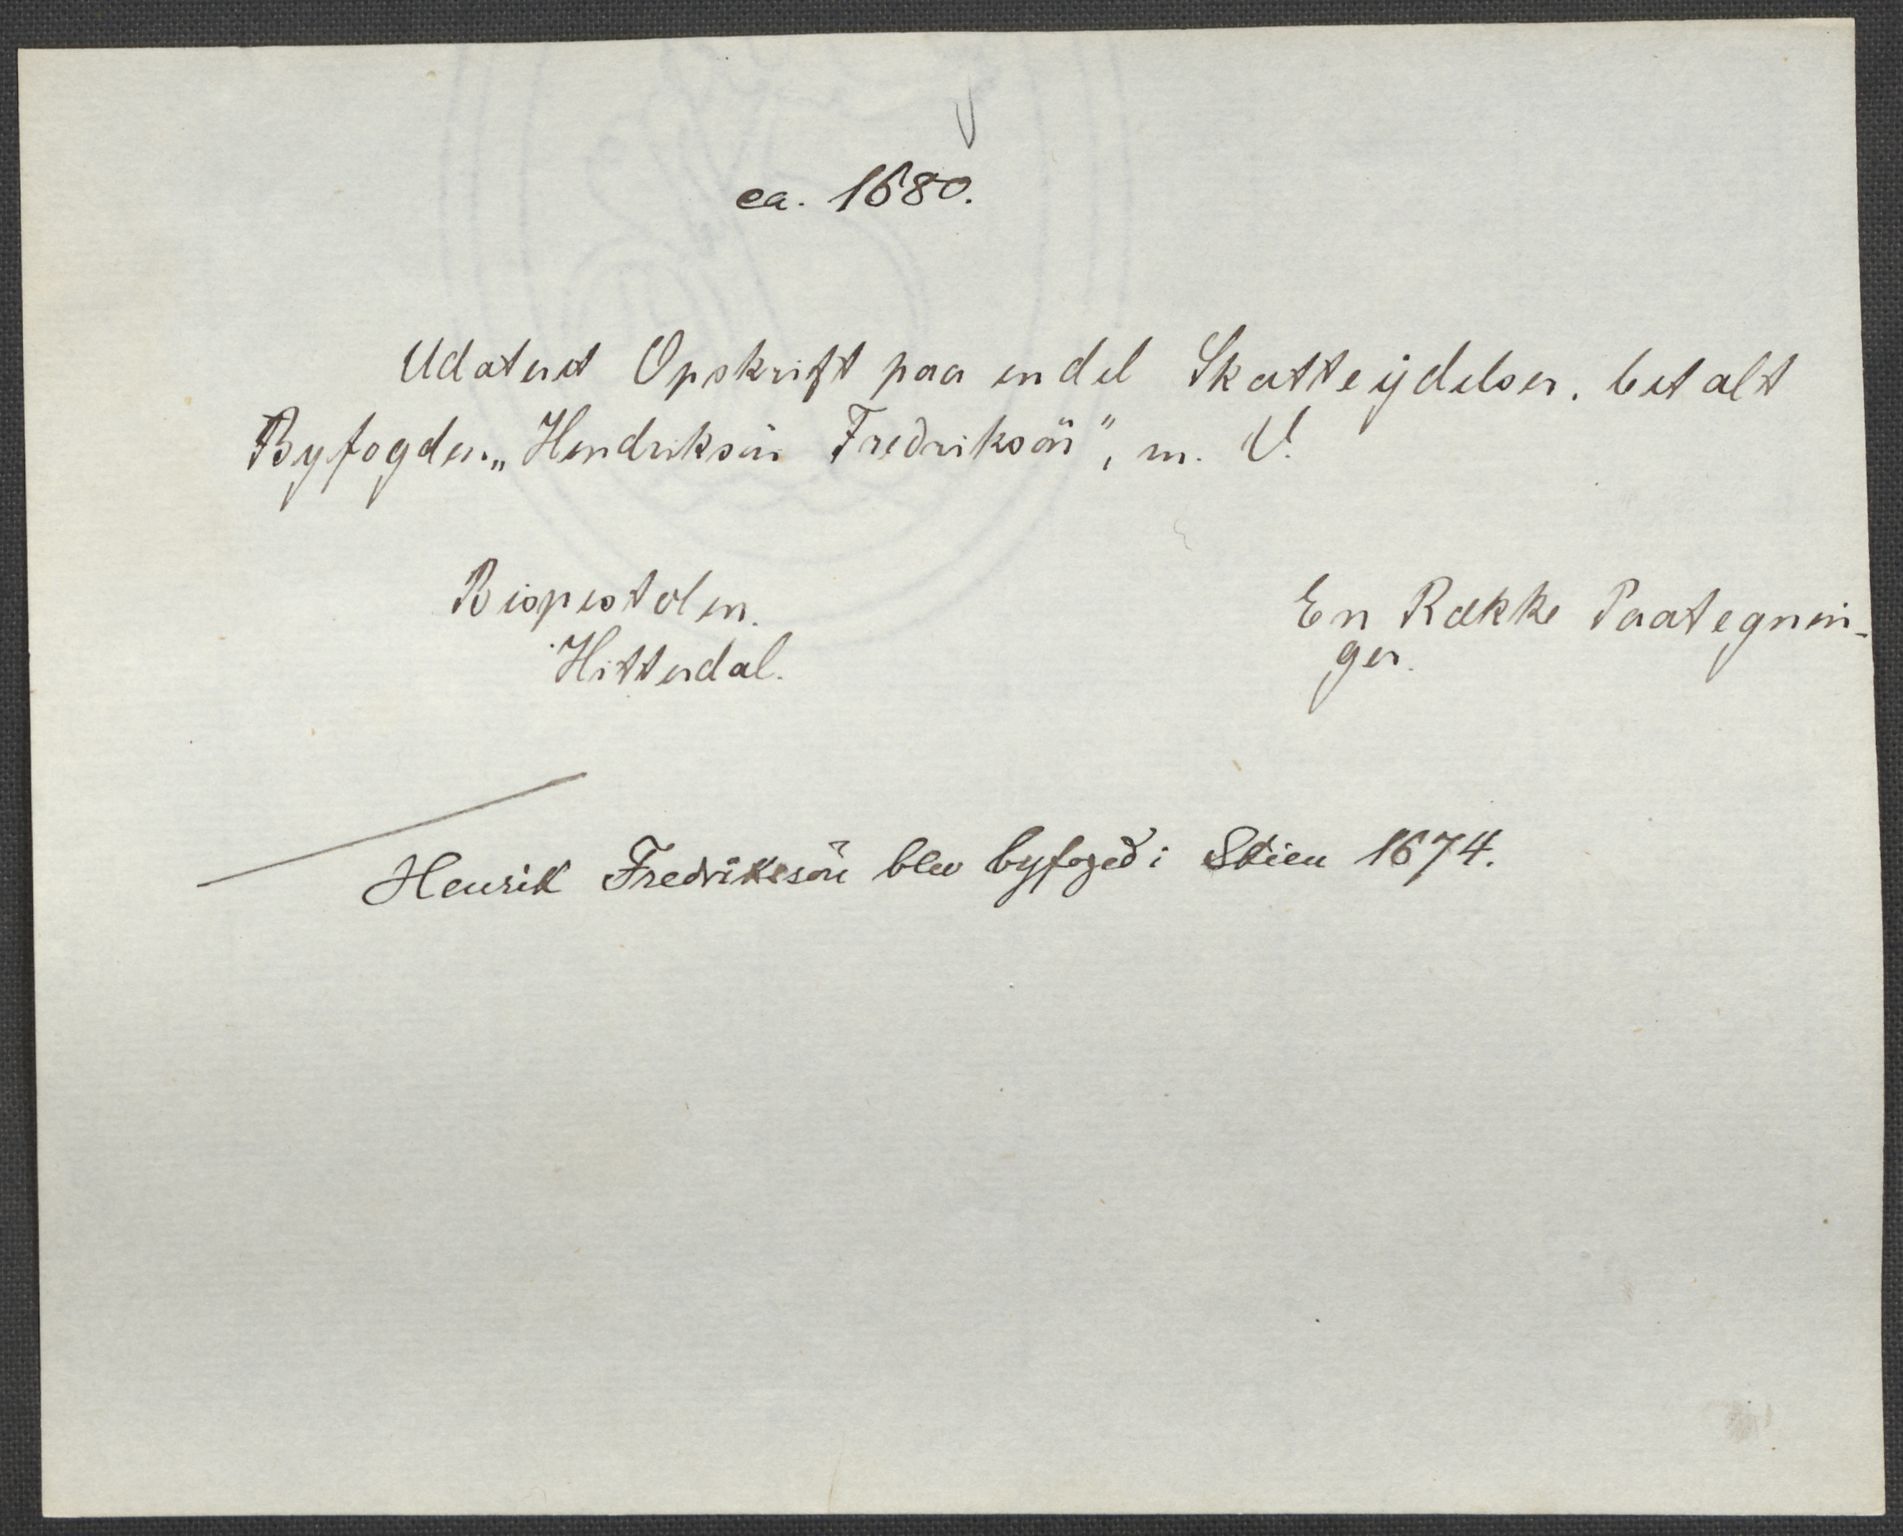 ca. 1680.
Udatert Opskrift paa endel Skatteydelser, betalt
Byfogden „Hendriksön Fredriksön“, m. V.
Bispestolen.
Hitterdal.
En Række Paategnin-
ger.
Henrik Fredriksön blev byfoged i Skien 1674.